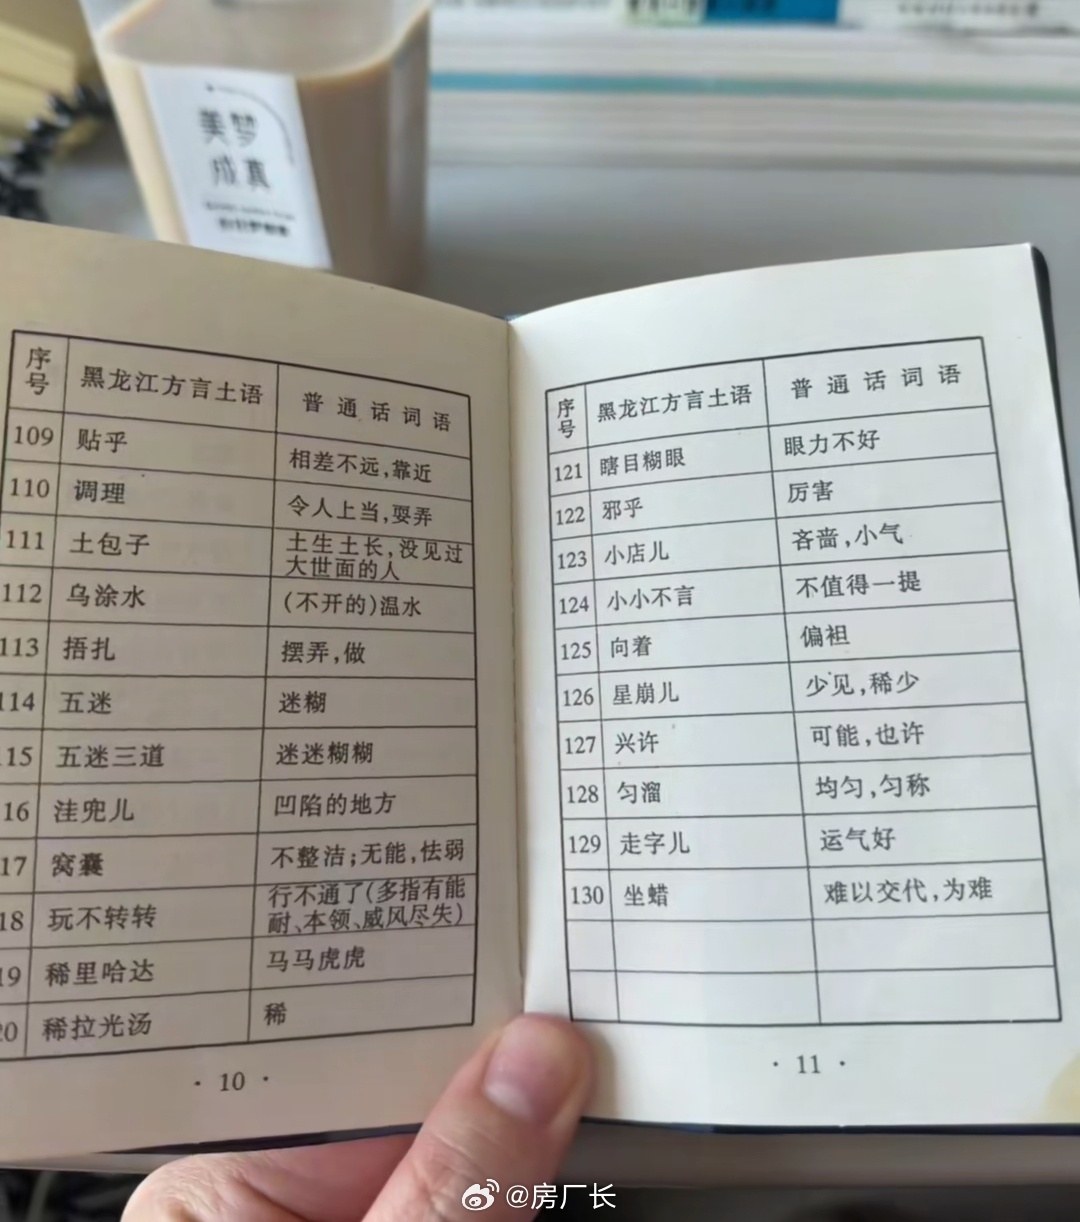 美梦
成真
序号 黑龙江方言土语 普通话词语
109 贴乎 相差不远,靠近
110 调理 令人上当,耍弄
111 土包子 土生土长,没见过大世面的人
112 乌涂水 (不开的)温水
113 捂扎 摆弄,做
114 五迷 迷糊
115 五迷三道 迷迷糊糊
16 洼兜儿 凹陷的地方
17 窝囊 不整洁;无能,怯弱
18 玩不转转 行不通了(多指有能耐、本领、威风尽失)
19 稀里哈达 马马虎虎
20 稀拉光汤 稀
· 10 ·
序号 黑龙江方言土语 普通话词语
121 瞎目糊眼 眼力不好
122 邪乎 厉害
123 小店儿 吝啬,小气
124 小小不言 不值得一提
125 向着 偏袒
126 星崩儿 少见,稀少
127 兴许 可能,也许
128 匀溜 均匀,匀称
129 走字儿 运气好
130 坐蜡 难以交代,为难
· 11 ·
@房厂长